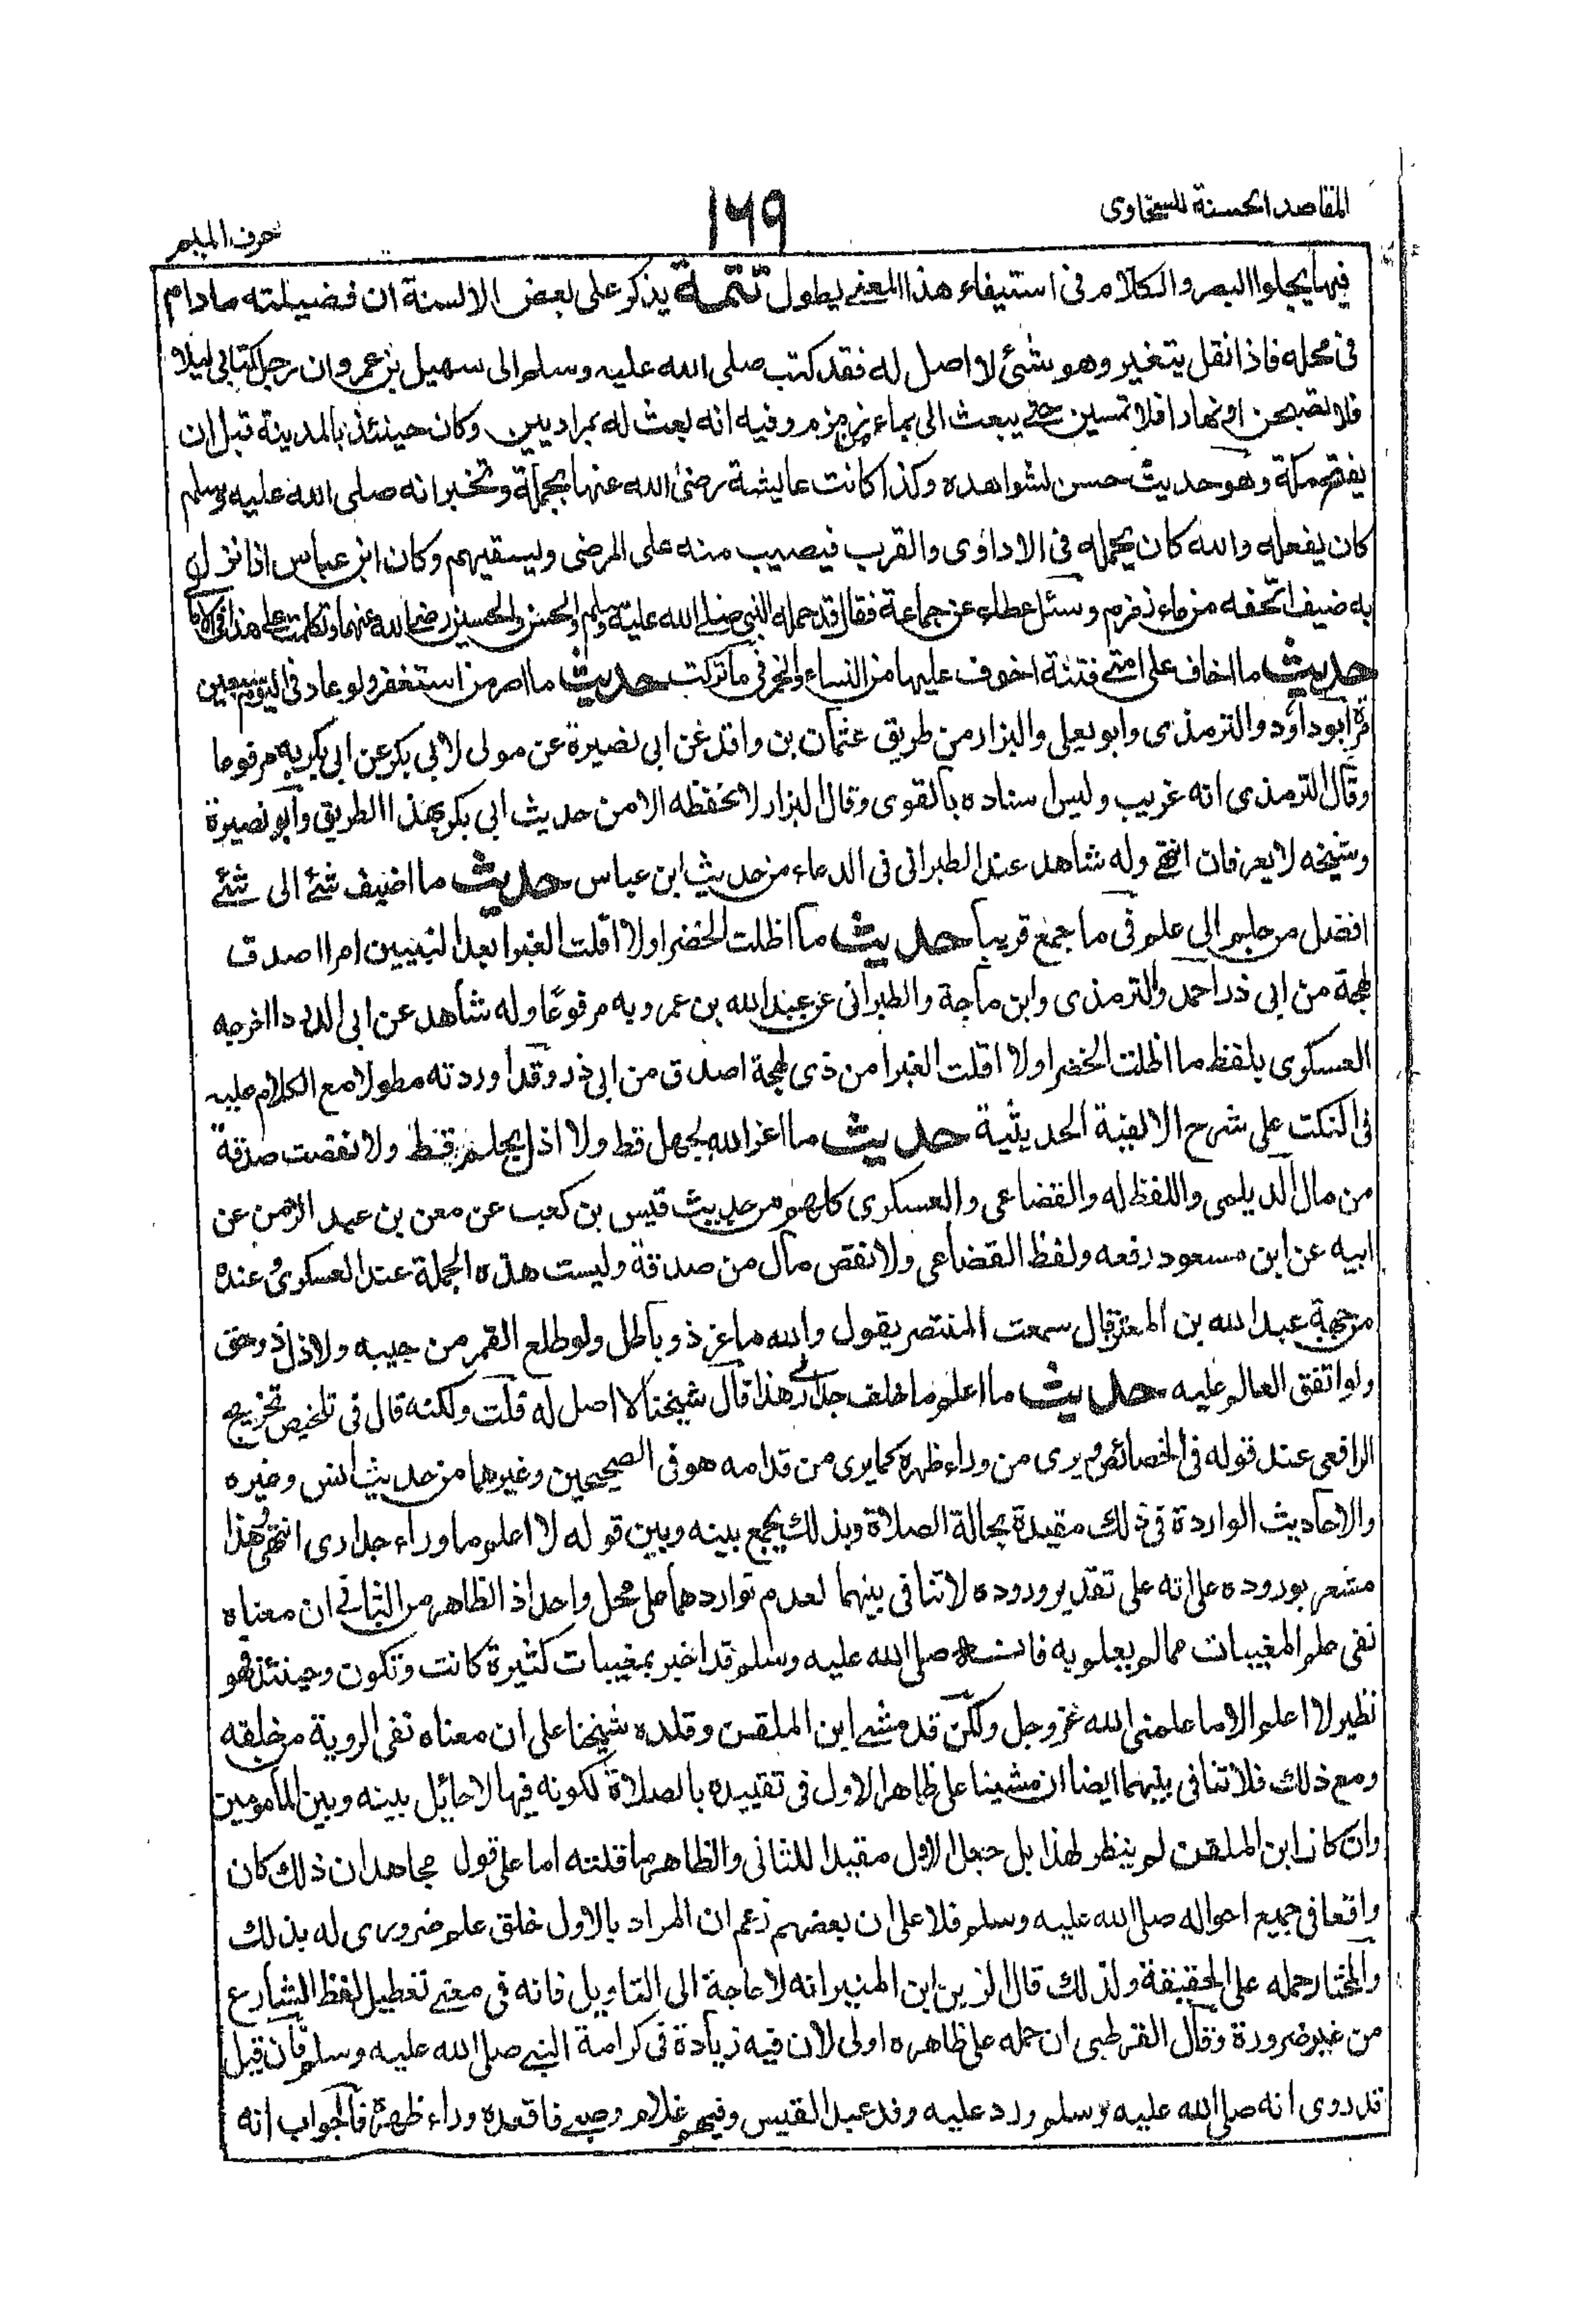 المقاصد الحسنة للسخاوى
١٦٩
حرف الميم
فيها يجلوا البصر والكلام فى استيفاء هذا المعنى يطول تتمة يذكر على بعض الالسنة ان فضيلته مادام
فى محله فاذا نقل يتغير وهو شئ لا اصل له فقد كتب صلى الله عليه وسلم الى سهيل بن عمرو ان جاء كتابى ليلا
فلا تصبحن او نهارا فلا تمسين حتى يبعث الى بماء زمزم وفيه انه بعث له بمزاديتين وكان حينئذ بالمدينة قبل ان
يفتح مكة وهو حديث حسن لشواهده وكذا كانت عايشة رضى الله عنها تحمله وتخبر انه صلى الله عليه وسلم
كان يفعله والله كان يحمله فى الاداوى والقرب فيصيب منه على المرضى ويسقيهم وكان ابن عباس اذا نزل
به ضيف اتحفه من ماء زمزم وسئل عطاء عن جماعة فقال قد حمله النبى صلى الله عليه وسلم والحسن والحسين رضى الله عنهما وتكلمت على هذا فى
حديث ما اخاف على امتى فتنة اخوف عليها من النساء والخمر فى ما تركت حديث ما اصر من استغفر ولو عاد فى اليوم سبعين
مرة ابو داود والترمذى وابو يعلى والبزار من طريق عثمان بن واقد عن ابى نصيرة عن مولى لابى بكر عن ابى بكر به مرفوعا
وقال الترمذى انه غريب وليس اسناده بالقوى وقال البزار لا نحفظه الا من حديث ابى بكر بهذا الطريق وابو نصيرة
وشيخه لا يعرفان انتهى وله شاهد عند الطبرانى فى الدعاء من حديث ابن عباس حديث ما اضيف شئ الى شئ
افضل من حلم الى علم فى ما جمع قريبا حديث ما اظلت الخضرا ولا اقلت الغبرا بعد النبيين امرا اصدق
لهجة من ابى ذر احمد والترمذى وابن ماجة والطبرانى عن عبد الله بن عمرو به مرفوعا وله شاهد عن ابى الدردا اخرجه
العسكرى بلفظ ما اظلت الخضرا ولا اقلت الغبرا من ذى لهجة اصدق من ابى ذر وقد اوردته مطولا مع الكلام عليه
فى النكت على شرح الالفية الحديثية حديث ما اعز الله بجهل قط ولا اذل بحلم قط ولا نقصت صدقة
من مال الديلمى واللفظ له والقضاعى والعسكرى كلهم من حديث قيس بن كعب عن معن بن عبد الرحمن عن
ابيه عن ابن مسعود رفعه ولفظ القضاعى ولا نقص مال من صدقة وليست هذه الجملة عند العسكرى وعنده
من جهة عبد الله بن المعتز قال سمعت المنتصر يقول والله ما عز ذو باطل ولو طلع القمر من جيبه ولا ذل ذو حق
ولو اتفق العالم عليه حديث ما اعلم ما خلف جدارى هذا قال شيخنا لا اصل له قلت ولكنه قال فى تلخيص تخريج
الرافعى عند قوله فى الخصائص ويرى من وراء ظهره كما يرى من قدامه هو فى الصحيحين وغيرهما من حديث انس وغيره
والاحاديث الواردة فى ذلك مقيدة بحالة الصلاة وبذلك يجمع بينه وبين قوله لا اعلم ما وراء جدارى انتهى وهذا
مشعر بوروده على انه على تقدير وروده لا تنافى بينهما لعدم تواردهما على محل واحد اذ الظاهر من الثانى ان معناه
نفى علم المغيبات مما لم يعلم به فانه صلى الله عليه وسلم قد اخبر بمغيبات كثيرة كانت وتكون وحينئذ فهو
نظير لا اعلم الا ما علمنى الله عز وجل ولكن قد مشى ابن الملقن وقلده شيخنا على ان معناه نفى الروية من خلفه
ومع ذلك فلا تنافى بينهما ايضا ان مشينا على ظاهر الاول فى تقييده بالصلاة لكونه فيها لا حائل بينه وبين المأمومين
وان كان ابن الملقن لم ينظر لهذا بل جعل الاول مقيدا للثانى والظاهر ما قلته اما على قول مجاهد ان ذلك كان
واقعا فى جميع احواله صلى الله عليه وسلم فلا على ان بعضهم زعم ان المراد بالاول خلق علم ضرورى له بذلك
والمختار حمله على الحقيقة ولذلك قال الزين ابن المنير انه لا حاجة الى التاويل فانه فى معنى تعطيل لفظ الشارع
من غير ضرورة وقال القرطبى ان حمله على ظاهره اولى لان فيه زيادة فى كرامة النبى صلى الله عليه وسلم فان قيل
قد روى انه صلى الله عليه وسلم ورد عليه وفد عبد القيس وفيهم غلام وضئ فاقعده وراء ظهره فالجواب انه